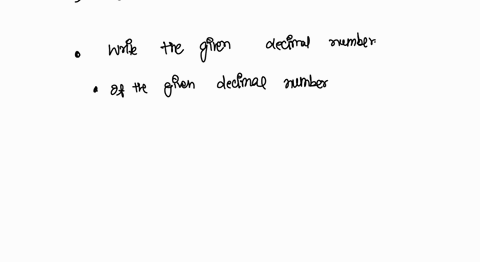 • Write the given decimal number
• of the given decimal number